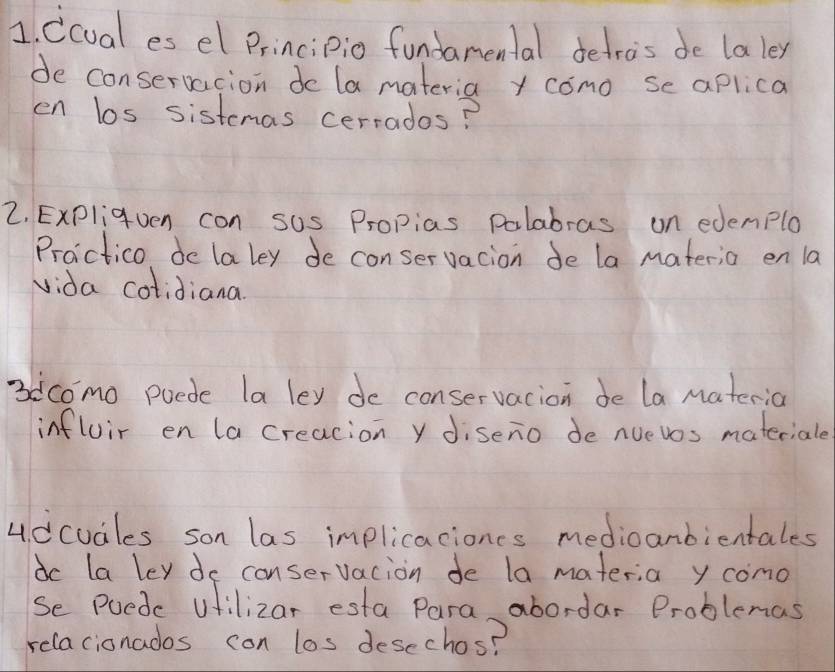 1. ¿cual es el Principio fundamental detrás de la ley
de conservación de la materia y cómo se aplica
en los sistemas cerrados?
2. Expliquen con sus Propias Palabras un edemplo
Práctico de la ley de conservación de la Materia en la
vida cotidiana.
3 ¿cómo puede la ley de conservación de la Materia
influir en la creación y diseño de nuevos materiale
4. ¿cuáles son las implicaciones medioambientales
de la ley de conservación de la materia y cómo
se Puede utilizar esta Para abordar Problemas
relacionados con los desechos?